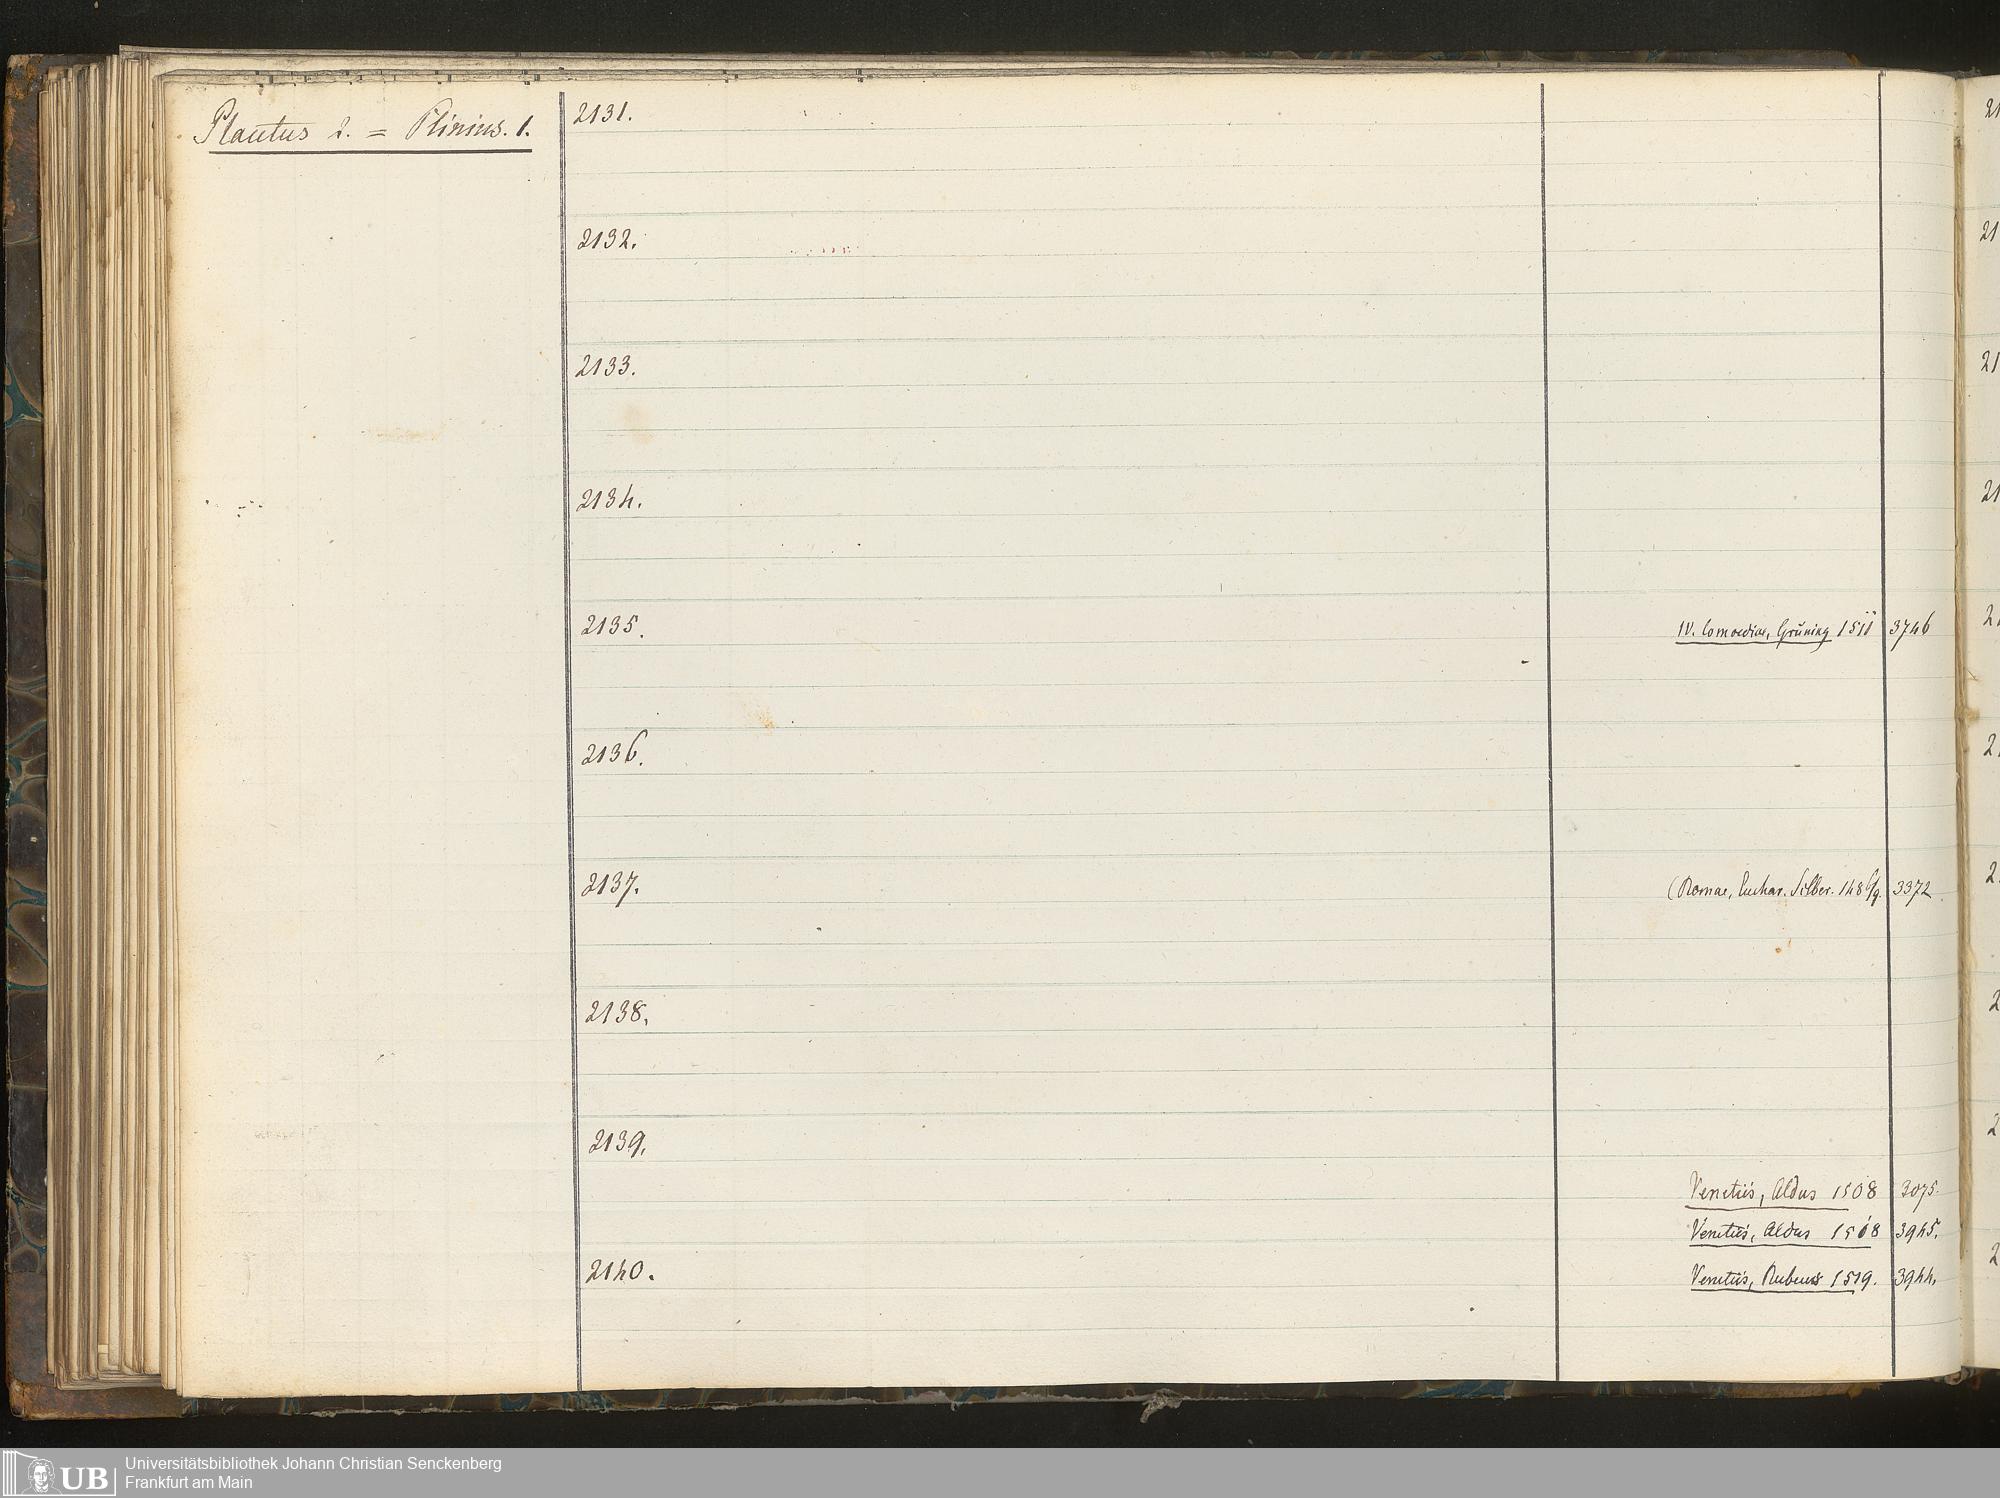 Plautus 2. = Plinius. 1.
2131.
2132.
2133.
2134.
2135.
IV. Comoediae, Grüning 1511 3746
2136.
2137.
(Romae, Euchar. Silber. 1486/9. 3372
2138.
2139.
Venetiis, Aldus 1508 3075.
Venetiis, Aldus 1508 3945.
2140.
Venetiis, Rubeus 1519. 3944.
UB
Universitätsbibliothek Johann Christian Senckenberg
Frankfurt am Main